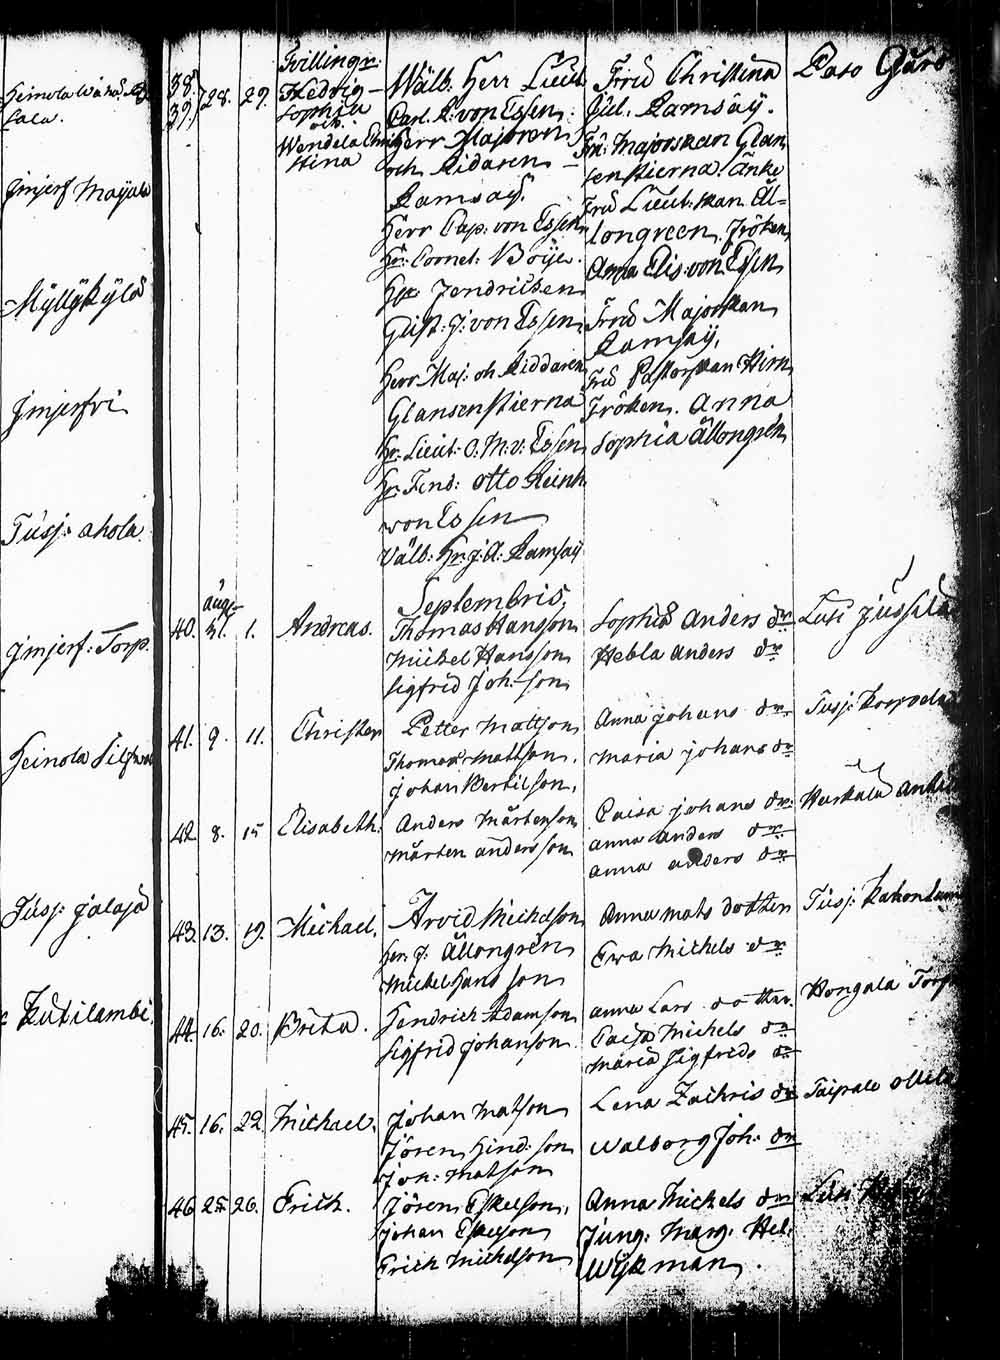 Heinola
Lala.
Jmjerf Maÿala
Mÿllÿkÿlä
Jmjerfvi
Tusj: ahola.
Jmjerf: Torp.
Heinola
Tusj: Jalaja
Kutilambi.
38. 39. 28. 29. Tvillingr: Hedvig Sophia och Wendela Christina
Wälb: Herr Lieut
Carl. R: von Essen.
Herr Majoren
och Ridaren
Ramsaÿ.
Herr Cap: von Essen
Hr: Cornet: Boÿe.
Hr Jendrichsen
Gust: J: von Essen
Herr Maj: oh Riddaren
Glansenstierna
Hr: Lieut: O: M: v: Essen
Hr Fend: Otto Reinh
von Essen
Välb: Hr: J: A: Ramsaÿ
Fru Christina
Gul. Ramsaÿ.
Fru: Majorskan Glan
senstierna Enke
Fru Lieut: skan Äl=
longreen. Fröken
Anna Elis: von Essen
Frud Majorskan
Ramsaÿ,
Fru Pastorskan Hirn
Fröken. Anna
Sophia Ällongrén
Paso Gård
Septembris,
40. Aug: 31. 1. Andreas.
Thomas Hansson
Michel Hansson
Sigfrid Joh:son
Sophia Anders dr
Hebla Anders dr
Lusi Jussila
41. 9. 11. Christer
Petter Mattson
Thomas Mattson.
Johan Bertilson.
Anna Johans dr
Maria Johans dr
Tusj:
42 8. 15 Elisabeth.
Anders Mårtenson
Mårten Andersson
Caisa Johans dr:
Anna Anders dr
anna anders dr
Haukala
43. 13. 19. Michael.
Arvid Michelson
Herr J: Ällongrén
Michel Hansson
Anna Mats dotter
Ewa Michels dr
Tusj:
44. 16. 20. Brita.
Hendrich Adamson
Sigfrid Johanson.
anna Lars dotter.
Caisa Michels dr
Maria Sigfrids dr
Hongala Torp
45. 16. 22. Michael.
Johan Matson
Jören Hind:son
Joh: Matson
Lena Zachris dr
Walborg Joh: dr
Taipale
46 25 26. Erich.
Jören Eskelson.
Johan Eskelson
Erich Michelson
Anna Michels dr
Jung: Marg: Hel:
Wÿkman.
Lusi